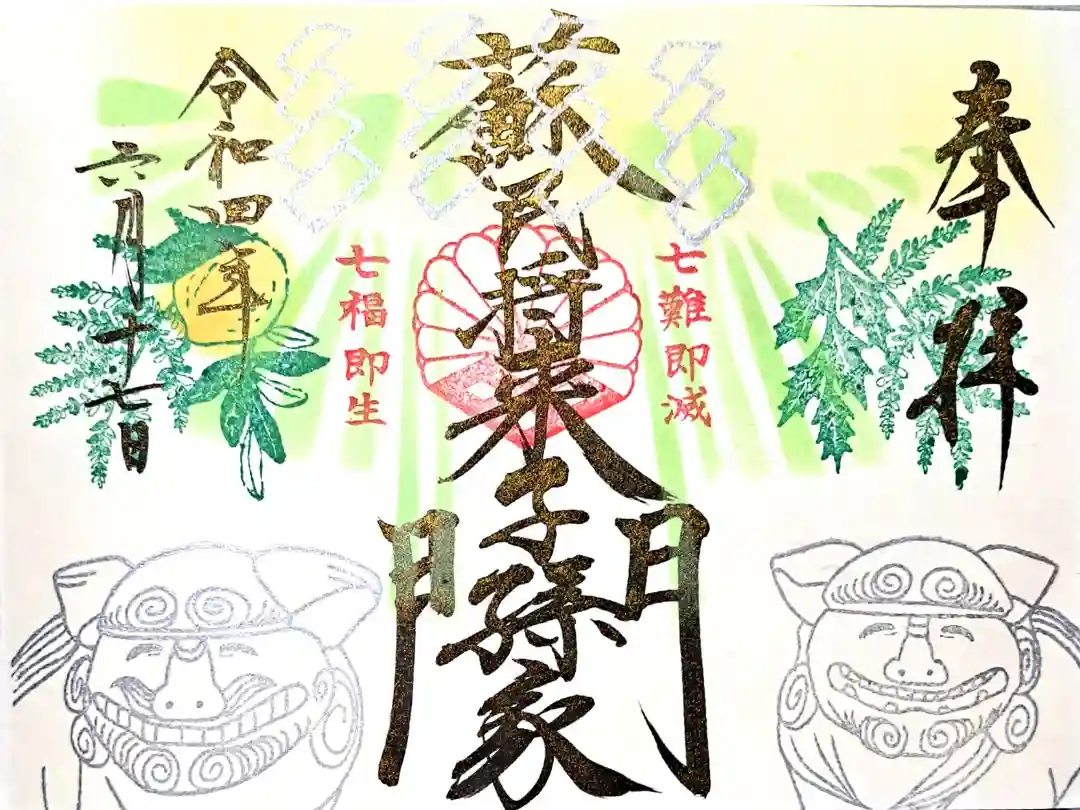 奉拝
七難即滅
蘇民将来子孫家門
七福即生
令和四年
六月十七日